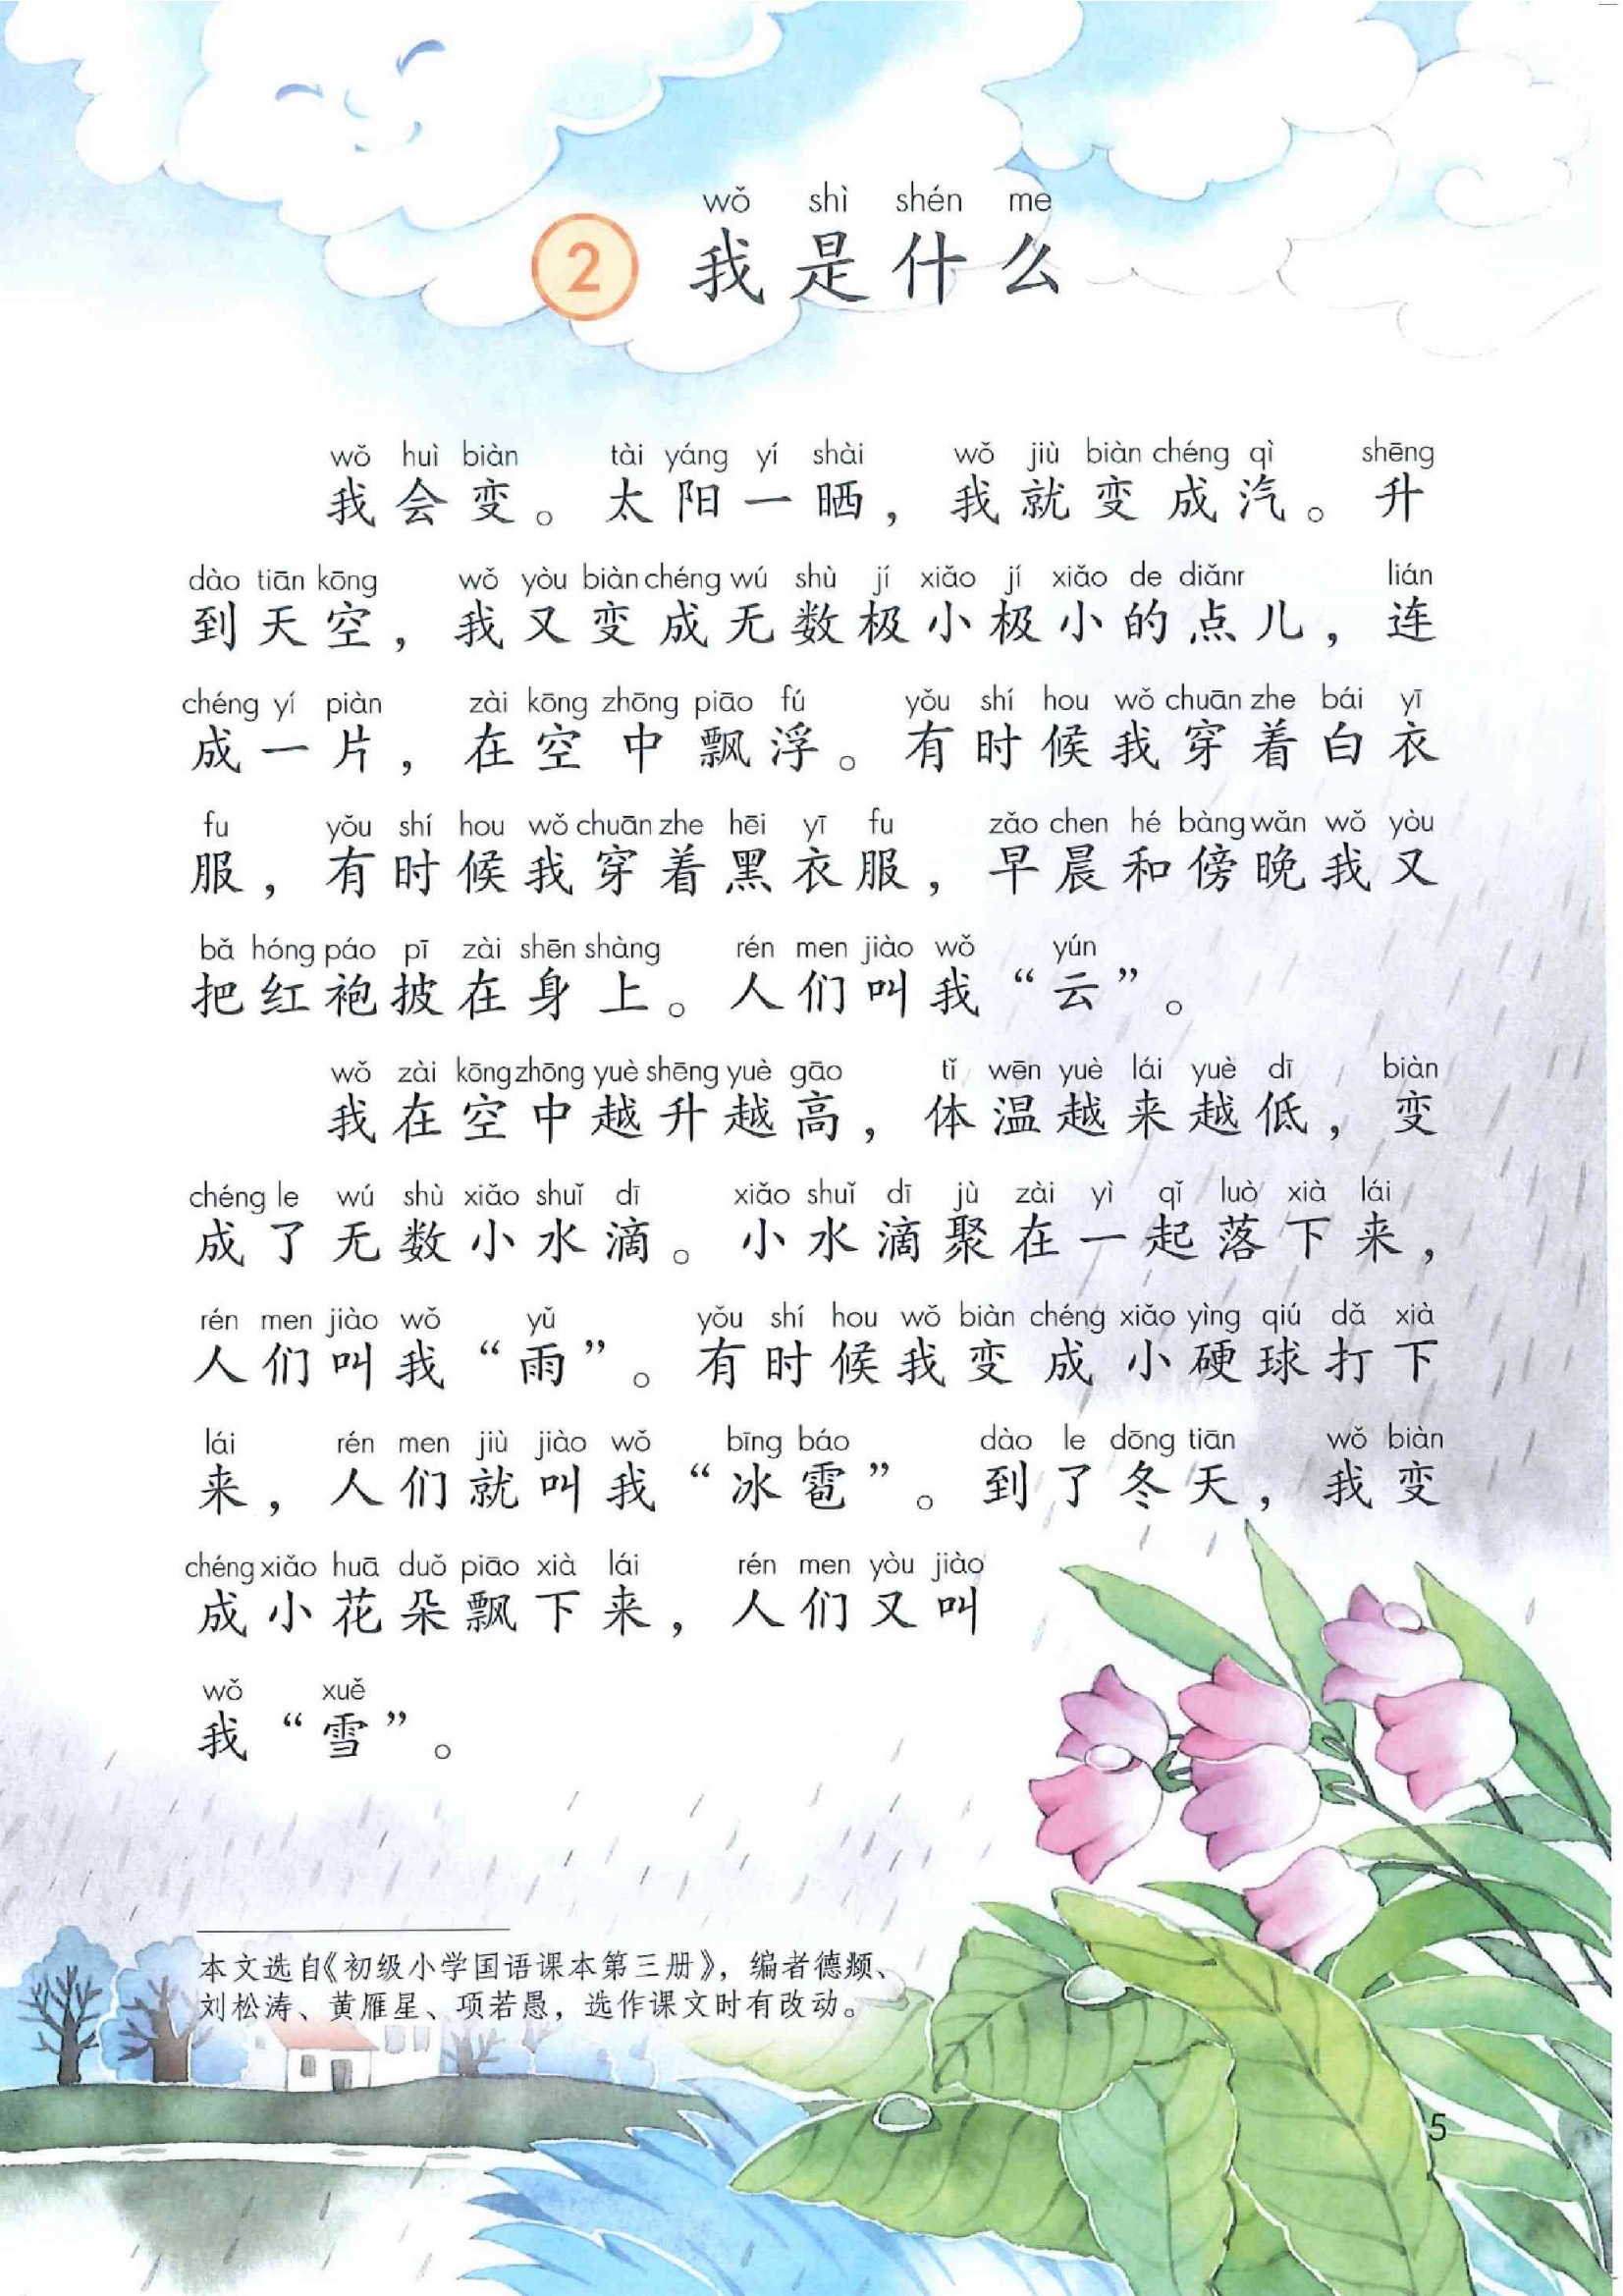 wǒ shì shén me
2 我是什么
wǒ huì biàn tài yáng yí shài wǒ jiù biàn chéng qì shēng
我会变。太阳一晒，我就变成汽。升
dào tiān kōng wǒ yòu biàn chéng wú shù jí xiǎo jí xiǎo de diǎnr lián
到天空，我又变成无数极小极小的点儿，连
chéng yí piàn zài kōng zhōng piāo fú yǒu shí hou wǒ chuān zhe bái yī
成一片，在空中飘浮。有时候我穿着白衣
fu yǒu shí hou wǒ chuān zhe hēi yī fu zǎo chen hé bàng wǎn wǒ yòu
服，有时候我穿着黑衣服，早晨和傍晚我又
bǎ hóng páo pī zài shēn shàng rén men jiào wǒ yún
把红袍披在身上。人们叫我“云”。
wǒ zài kōng zhōng yuè shēng yuè gāo tǐ wēn yuè lái yuè dī biàn
我在空中越升越高，体温越来越低，变
chéng le wú shù xiǎo shuǐ dī xiǎo shuǐ dī jù zài yì qǐ luò xià lái
成了无数小水滴。小水滴聚在一起落下来，
rén men jiào wǒ yǔ yǒu shí hou wǒ biàn chéng xiǎo yìng qiú dǎ xià
人们叫我“雨”。有时候我变成小硬球打下
lái rén men jiù jiào wǒ bīng báo dào le dōng tiān wǒ biàn
来，人们就叫我“冰雹”。到了冬天，我变
chéng xiǎo huā duǒ piāo xià lái rén men yòu jiào
成小花朵飘下来，人们又叫
wǒ xuě
我“雪”。
本文选自《初级小学国语课本第三册》，编者德频、
刘松涛、黄雁星、项若愚，选作课文时有改动。
5